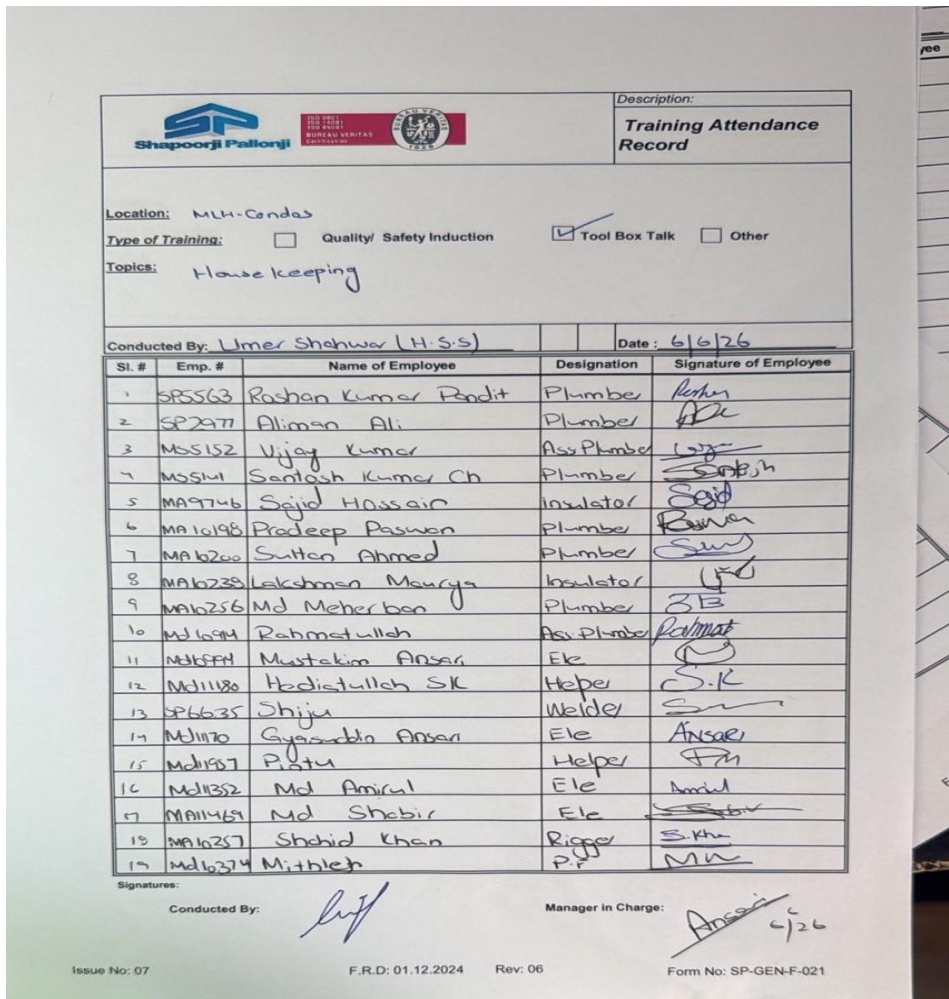 yee
Description:
SP
Shapoorji Pallonji
ISO 9001
ISO 14001
ISO 45001
BUREAU VERITAS
Certification
BUREAU VERITAS
1828
Training Attendance
Record
Location: MLH-Condos
Type of Training: Quality/ Safety Induction Tool Box Talk Other
Topics: House keeping
Conducted By: Umer Shahwar (H.S.S) Date : 6/6/26
Sl. # Emp. # Name of Employee Designation Signature of Employee
1 SP5563 Roshan Kumar Pandit Plumber
2 SP2977 Aliman Ali Plumber
3 MS5152 Vijay Kumar Ass Plumber
4 MS5141 Santosh Kumar Ch Plumber Santosh
5 MA9746 Sajid Hossain Insulator Sajid
6 MA10198 Pradeep Paswan Plumber
7 MA10200 Sultan Ahmed Plumber
8 MA10239 Lakshman Maurya Insulator
9 MA10256 Md Meherban Plumber
10 Rahmatullah Ass Plumber Rahmat
11 Mustakim Ansari Ele
12 Md11180 Hediatullah SK Helper S.K
13 SP6635 Shiju Welder
14 Md1170 Gyasuddin Ansari Ele ANSARI
15 Md11957 Pintu Helper
16 Md11352 Md Amirul Ele Amirul
17 MA11469 Md Shabir Ele
18 MA10257 Shahid Khan Rigger S.Kha
19 Md10374 Mithlesh P.F
Signatures:
Conducted By: Manager in Charge: Ansari
6/6/26
Issue No: 07 F.R.D: 01.12.2024 Rev: 06 Form No: SP-GEN-F-021